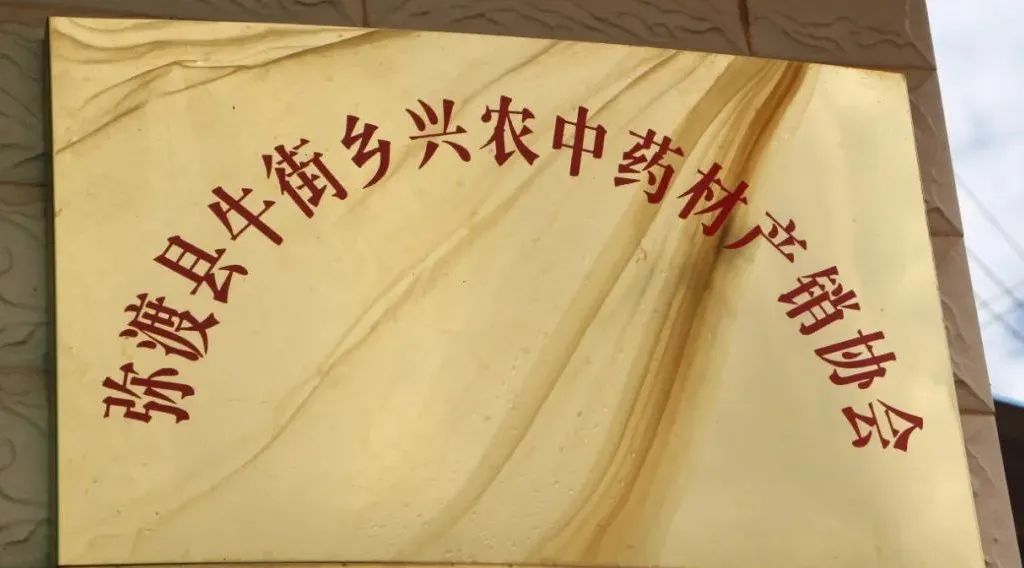 弥渡县牛街乡兴农中药材产销协会